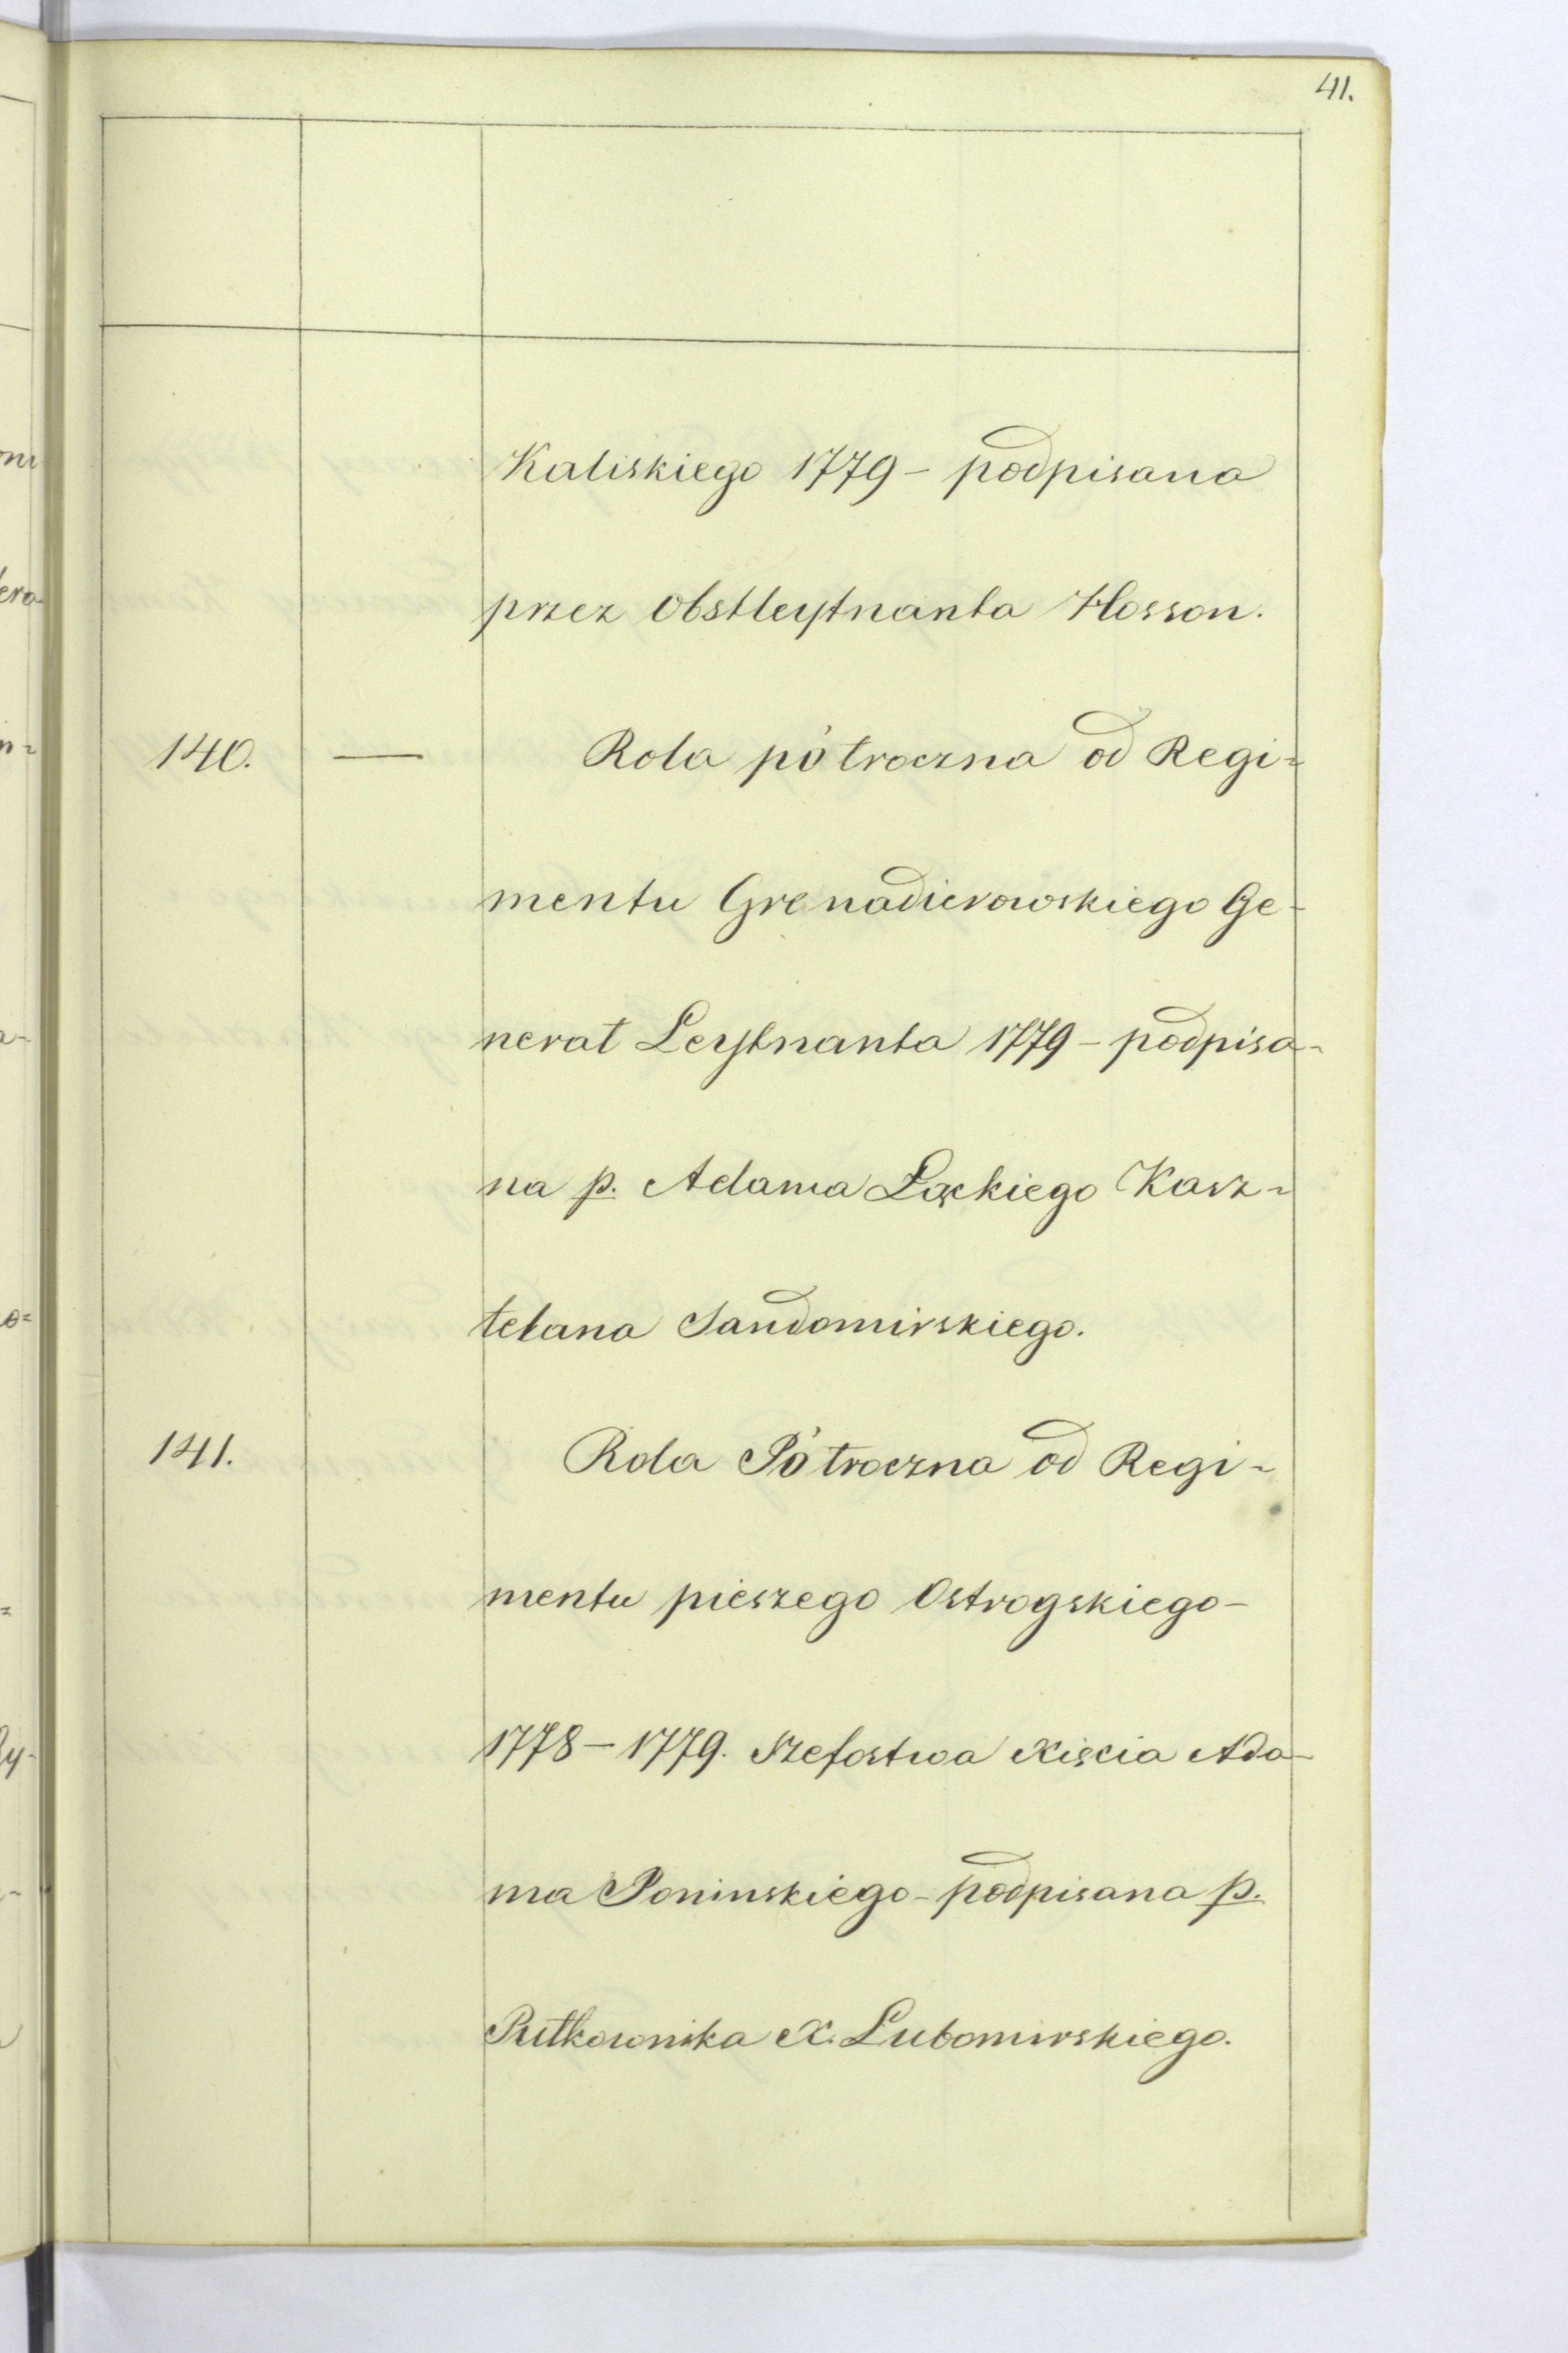 41.
Kaliskiego 1779 - podpisana
przez Obstleytnanta Hosson.
140. — Rola półroczna od Regi=
mentu Grenadierowskiego Ge-
nerał Leytnanta 1779 - podpisa-
na p. Adama Łąckiego Kasz=
telana Sandomirskiego.
141. Rola Półroczna od Regi-
mentu pieszego Ostrogskiego -
1778 - 1779. Szefostwa Xięcia Ada-
ma Poninskiego - podpisana p.
Pułkownika X. Lubomirskiego.